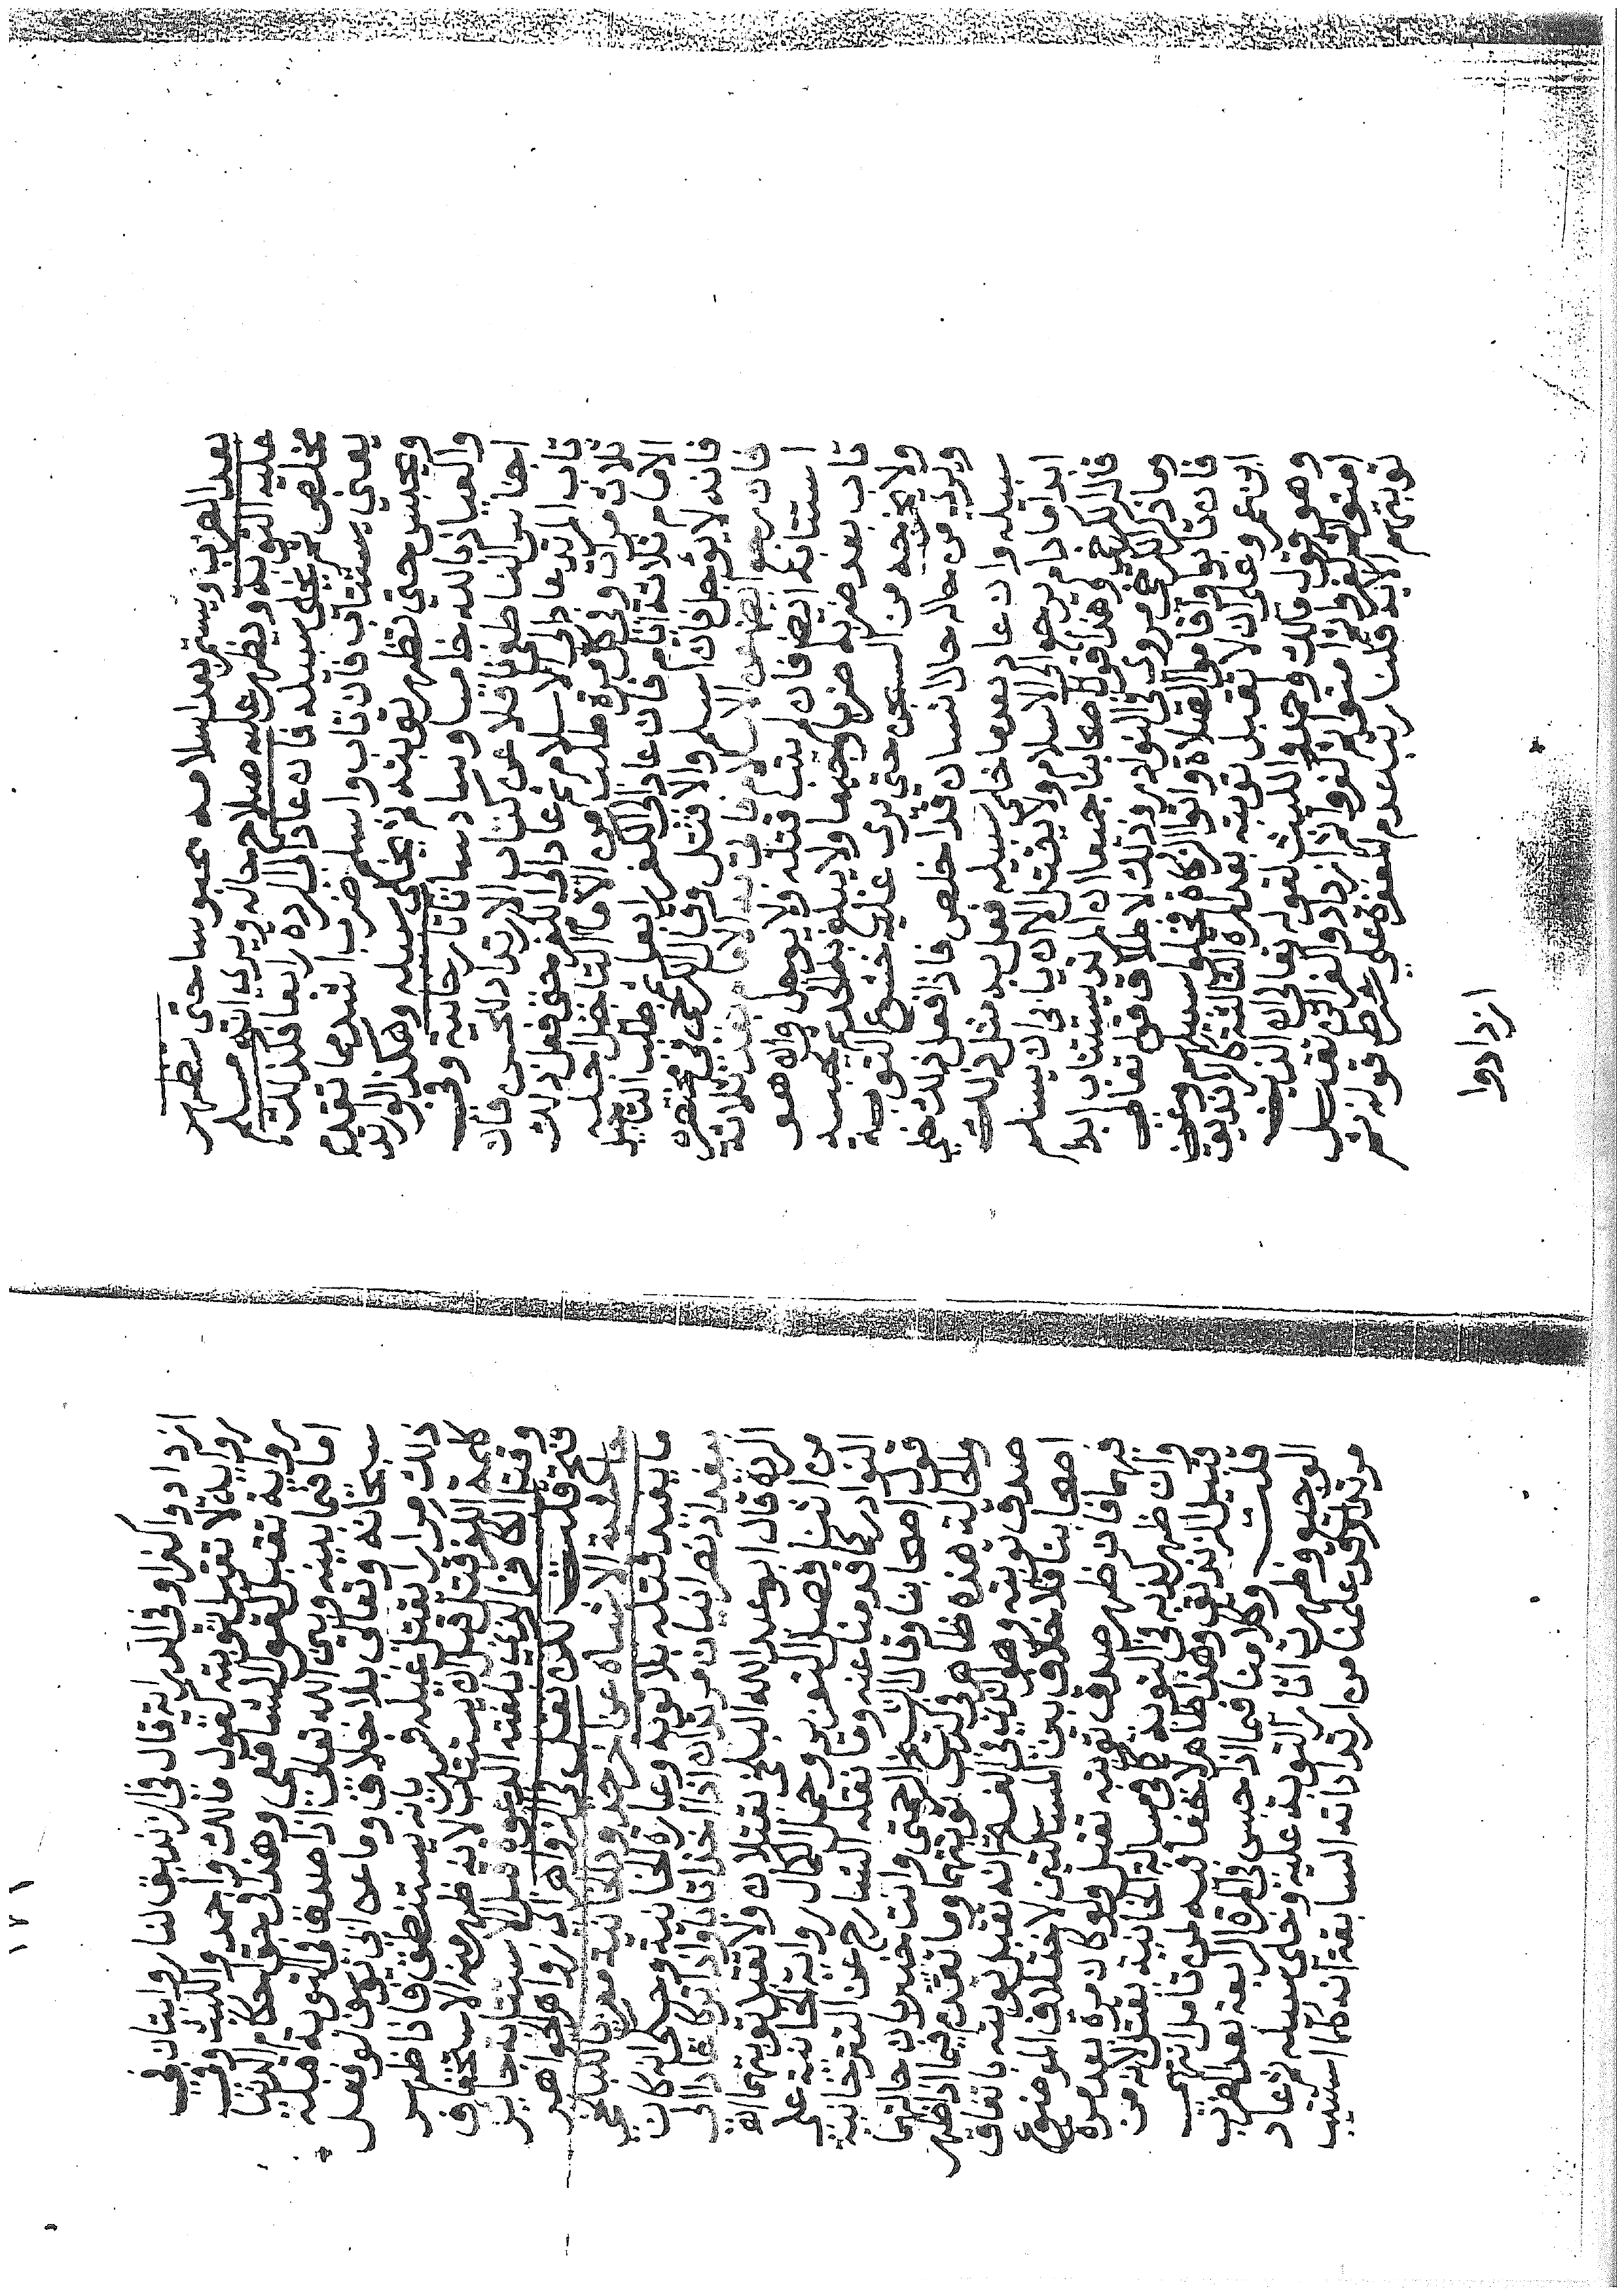 بعد الضرب ويستمر بعد اسلامه محبوسا حتى تظهر
عليه التوبة ويظهر عليه صلاح حاله ويرى انه مسلم
مخلص ثم يخلى سبيله فان عاد الى الردة رابعا فكذلك
يعني يستتاب فان تاب واسلم ضرب اشد مما تقدم
ويحبس حتى تظهر توبته ثم يخلى سبيله وهكذا لو ارتد
والعياذ بالله خامسا وسادسا تاتارخانية وفي
اجناس الناطفي ناقلا عن كتاب الارتداد للحسن فان
تاب المرتد عاد الى الاسلام ثم عاد الى الكفر حتى فعل ذلك
ثلاث مرات وفي كل مرة طلب من الامام التاخير اجله
الامام ثلاثة ايام فان عاد الى الكفر رابعا ثم طلب التاخير
فانه لا يؤجل فان اسلم والا قتل وقال الكرخي في مختصره
فان رجع ايضا عن الاسلام فاتي به الامام بعد ثلاثة
استتابه ايضا فان لم يتب قتله ولا يوجله وان هو
تاب بعد ضربه ضربا وجيعا ولا يبلغ به الحد ثم يحبسه
ولا يخرجه من السجن حتى يرى عليه خشوع التوبة
ويرى من حاله حال انسان قد اخلص فاذا فعل ذلك خلى
سبيله وان عاد بعد ما خلى سبيله فعل به مثل ذلك
ابدا ما دام يرجع الى الاسلام ولا يقتل الا ان يابى ان يسلم
قال الكرخي وهذا قول اصحابنا جميعا ان المرتد يستتاب ابدا
وما ذكر الكرخي مروي في النوادر وذلك لاطلاق قوله تعالى
فان تابوا واقاموا الصلاة واتوا الزكاة فخلوا سبيلهم وعن
ابن عمر وعلي ان لا تقبل توبة بعد المرة الثالثة كالزنديق
وهو قول مالك واحمد والليث لقوله تعالى ان الذين
امنوا ثم كفروا ثم امنوا ثم كفروا ثم ازدادوا كفرا لن تقبل
توبتهم الاية قلنا رتب عدم المغفرة على شرط قوله ثم
ازدادوا
١٢١
ازدادوا كفرا وفي الدراية قال في الزنديق لنا روايتان في
رواية لا تقبل توبته كقول مالك واحمد والليث وفي
رواية تقبل كقول الشافعي وهذا في حق احكام الدنيا
اما فيما بينه وبين الله تعالى اذا صدق في التوبة قبله
سبحانه وتعالى بلا خلاف وما عن ابي يوسف لو فعل
ذلك مرارا يقتل غيلة فسره بانه يستنظر فاذا ظهر
كلمة الكفر قتل قبل ان يستتاب لانه ظهر منه الاستخفاف
وقتل الكافر الذي بلغته الدعوة قبل الاستتابة جايز
فتح قلت لكن نقل في الزواهر زواهر الجواهر
حاشية الاشباه عن اخر حدود الخانية معزيا للبلخي
ما يفيد قتله بلا توبة وعبارة الخانية وحكي انه كان
ببغداد نصرانيان مرتدان اذا اخذا تابا واذا تركا عادا الى
الردة قال ابو عبد الله البلخي يقتلان ولا تقبل توبتهما اه
من اثنا فصل التعزير وحمل الكمال رواية الخانية على
النوادر كما قدمنا عنه وما نقله الشارح عن التترخانية
قول اصحابنا وقال الشيخ الرحمتي وانت خبير بان حالتهما
والحالة هذه ظاهر في كذب توبتهما وما تقدم فيما اذا ظهر
صدق توبته وهو الذي في الفتح انه تقبل توبته باتفاق
اصحابنا فلا خلاف بين المسالتين لاختلاف الموضوع
فيهما فان ظهر صدق توبته تقبل ولو كان مرة بعد مرة
وان ظهر كذبه في التوبة كما في مسالة الخانية يقتل لانه من
قبيل الزنديق وهذا ظاهر لا خفا فيه لمن تامل انتهى
قلت وكلامنا فيما اذا حبس في المرة الرابعة بعد الضرب
الوجيع وظهرت اثار التوبة عليه وخلي سبيله ثم عاد
مرتدا فقد علمنا من ارتداداته السابقة انه كلما استتيب